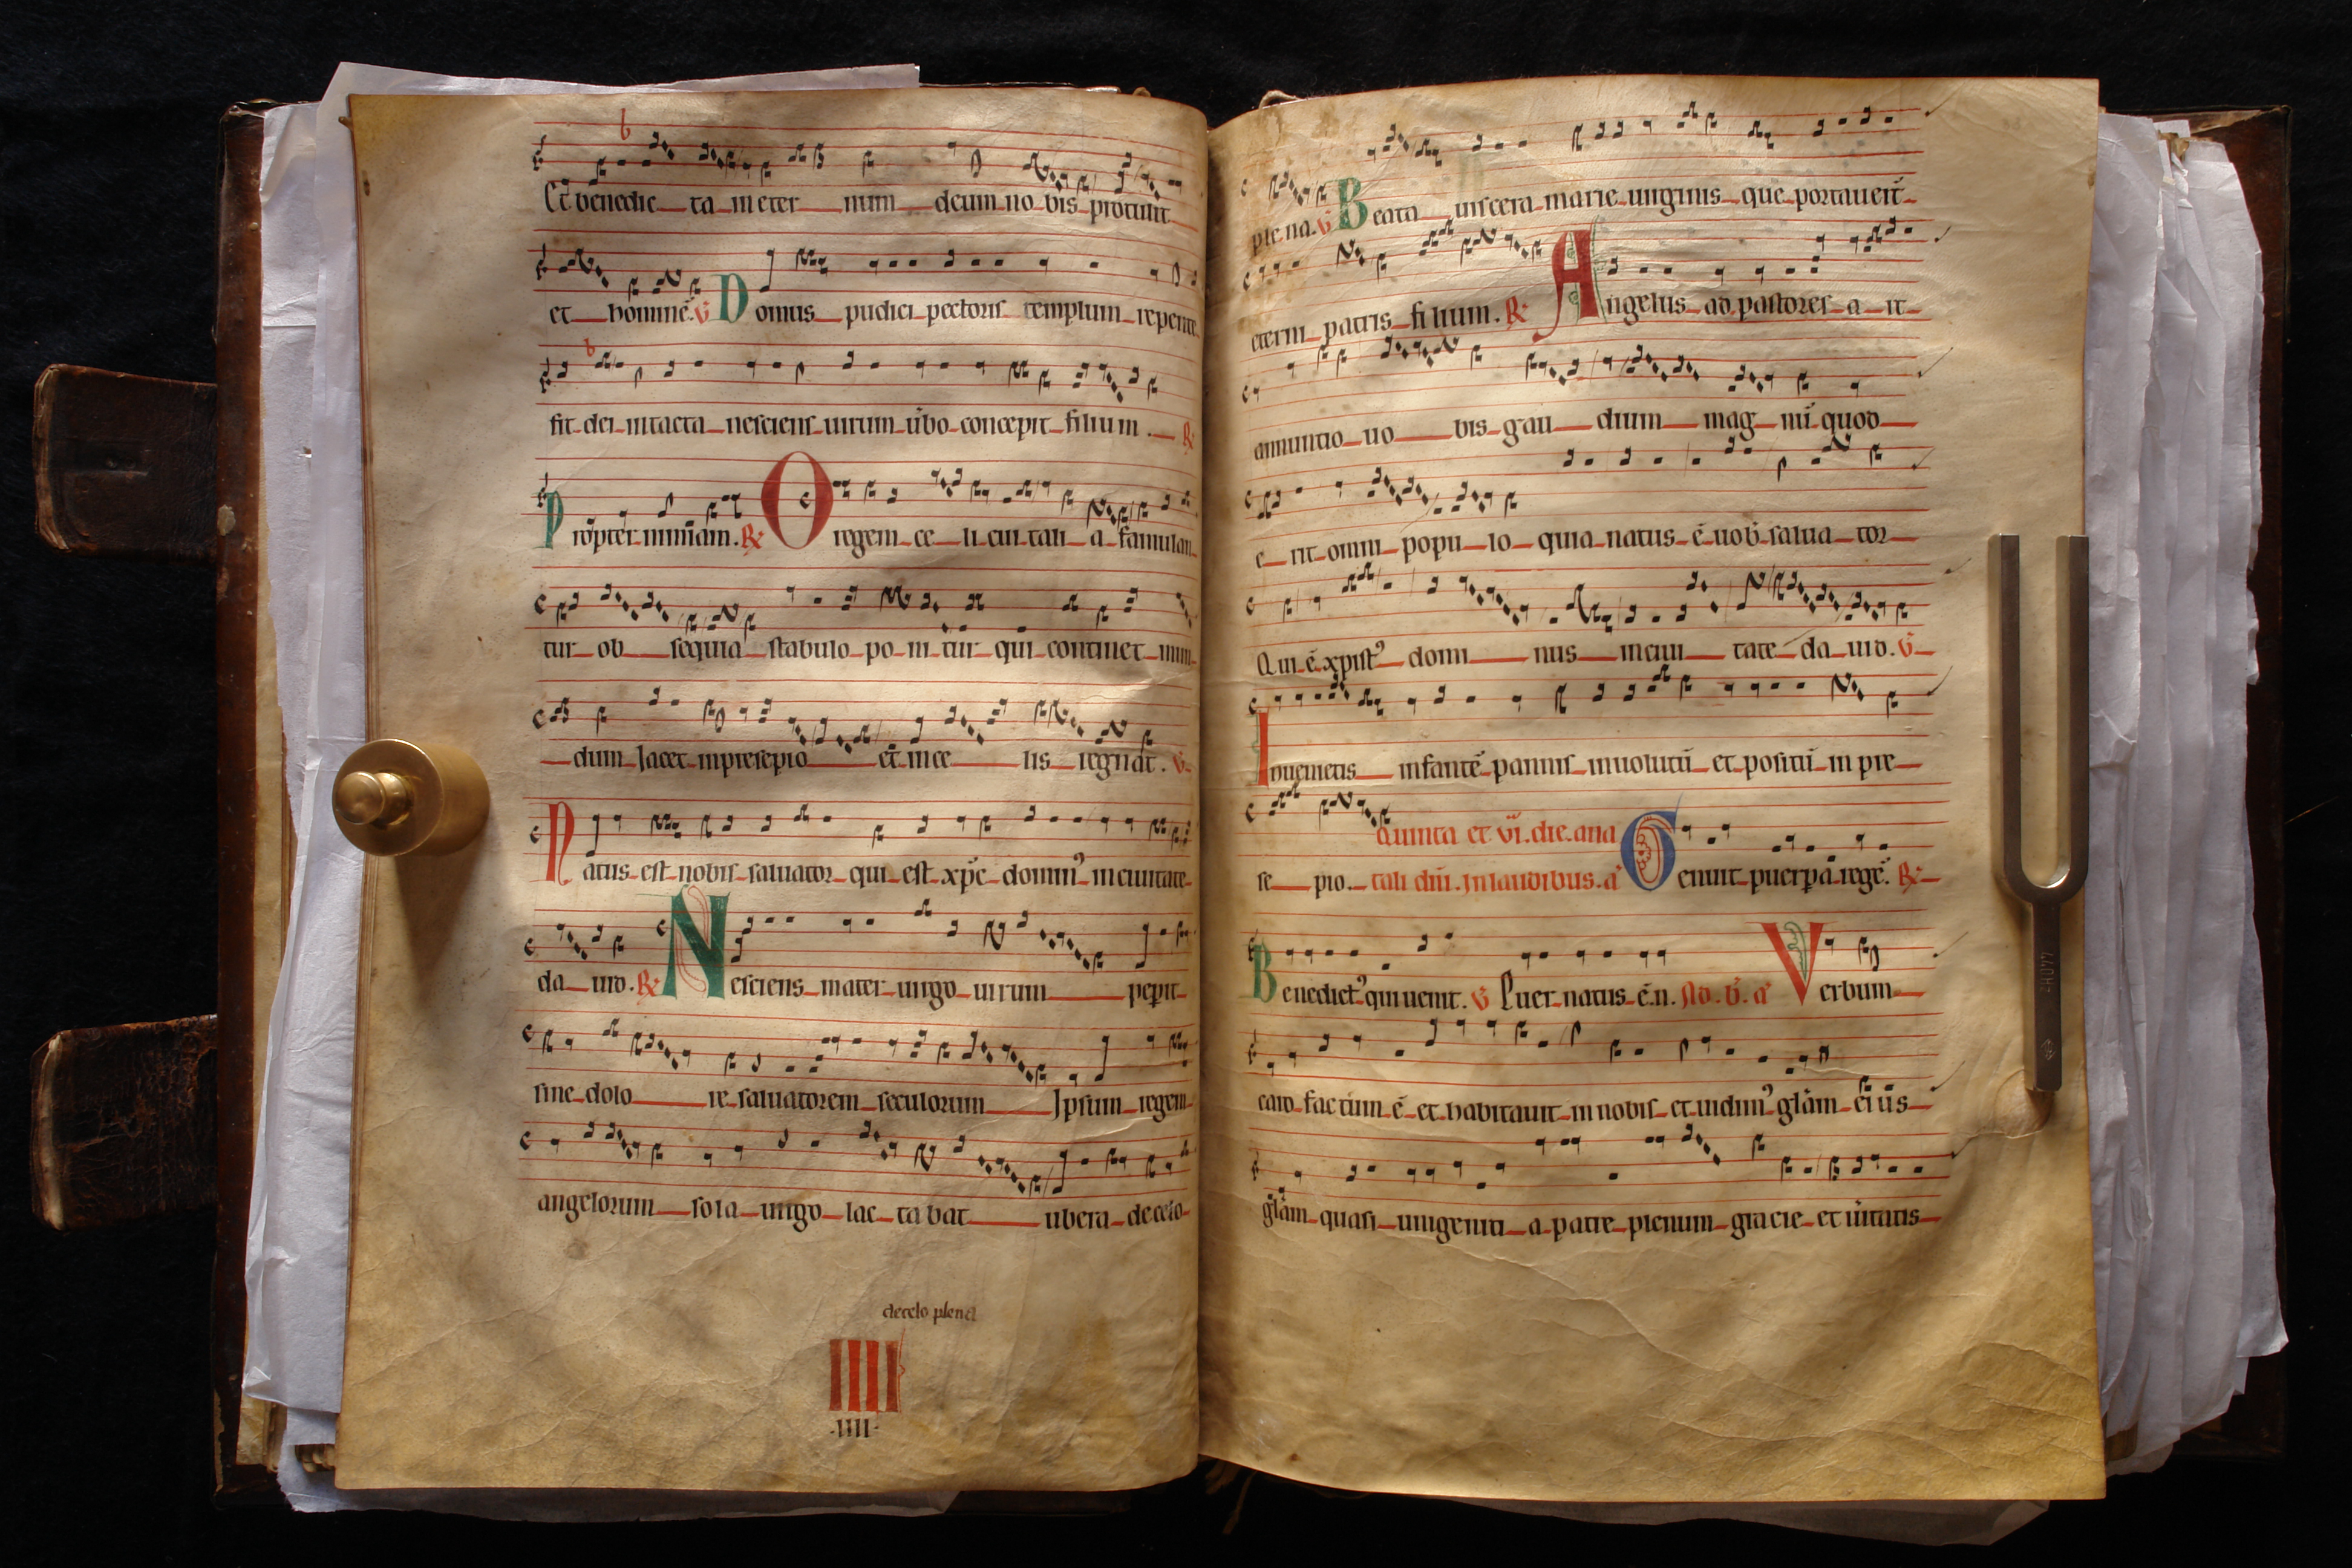 b
Et benedic ta in eter num deum no bis protulit
et hominē. V̄ Domus pudici pectoris templum repente
b
fit dei intacta nesciens uirum ūbo concepit filium. R̷
Propter nimiam. R̷ O regem ce li cui tali a famulan
tur ob sequia stabulo po ni tur qui continet mun
dum Jacet in presepio et in ce lis regnat. V̄
Natus est nobis saluator qui est xp̄c domin⁹ in ciuitate
da uid. R̷ Nesciens mater uirgo uirum peperit
sine dolo re saluatorem seculorum Jpsum regem
angelorum sola uirgo lac ta bat ubera de celo
de celo plena
IIII
·IIII·
ple na. V̄ Beata uiscera marie uirginis que portauert̄
eterni patris filium. R̷ Angelus ad pastores a it
annuntio uo bis gau dium mag nū quod
e rit omni popu lo quia natus ē uob̄ salua tor
Qui ē xpist⁹ domi nus in ciui tate da uid. V̄
Inuenietis infantē pannis inuolutū et positū in pre
Quinta et vi. die. a na
se pio. tali dn̄i. Jn laudibus. a̅ Genuit puerpa regē. R̷
Benedict⁹ qui uenit. V̄ Puer natus ē. n. Ad. b̄. a̅ Verbum
caro factum ē et habitauit in nobis et uidim⁹ glām ei us
glām quasi unigeniti a patre plenum gracie et ūitatis
440Hz